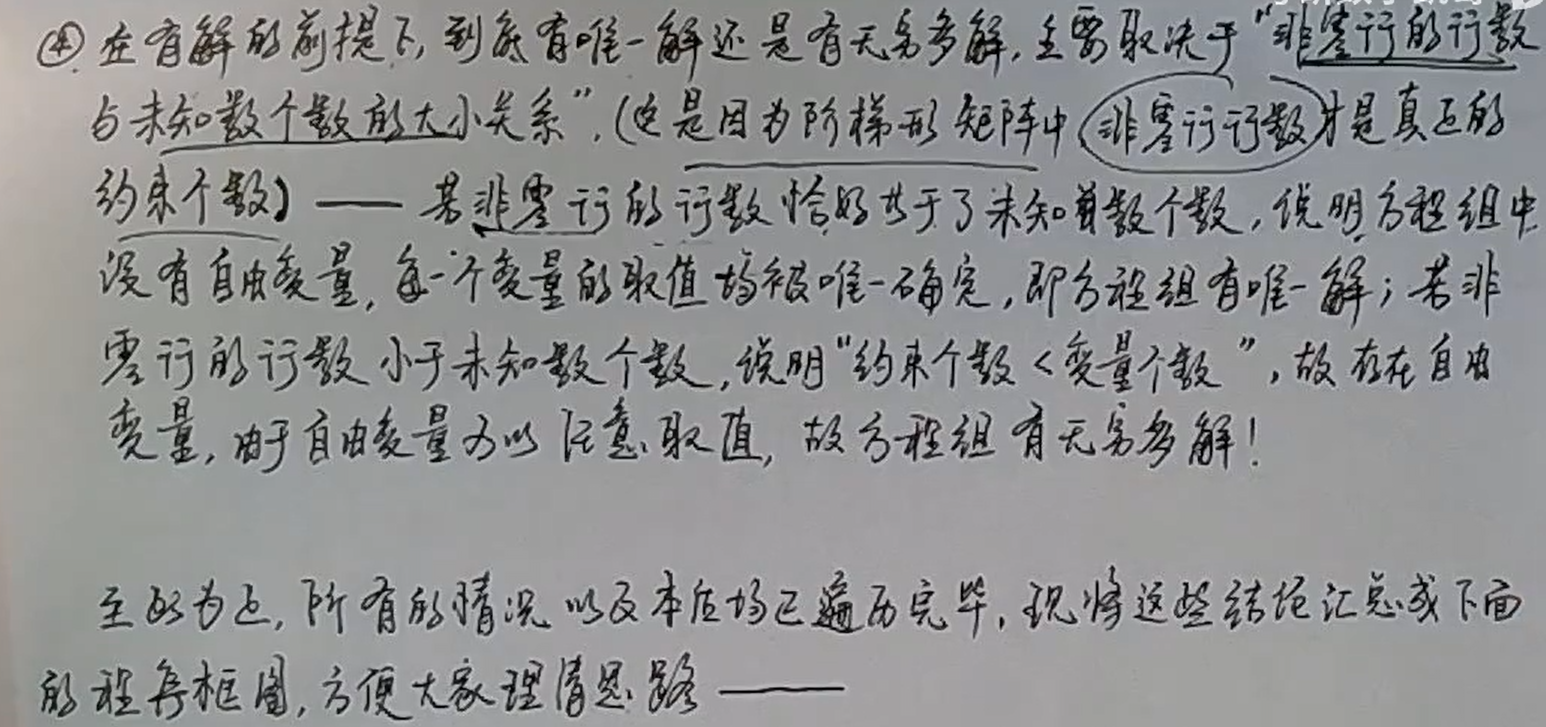 ④ 在有解的前提下,到底有唯一解还是有无穷多解,主要取决于"非零行的行数
与未知数个数的大小关系".(这是因为阶梯形矩阵中非零行行数才是真正的
约束个数)——若非零行的行数恰好等于了未知数个数,说明方程组中
没有自由变量,每一个变量的取值均被唯一确定,即方程组有唯一解;若非
零行的行数小于未知数个数,说明"约束个数<变量个数",故存在自由
变量,由于自由变量可以任意取值,故方程组有无穷多解!
至此为止,所有的情况以及本质均已遍历完毕,现将这些结论汇总成下面
的程序框图,方便大家理清思路——